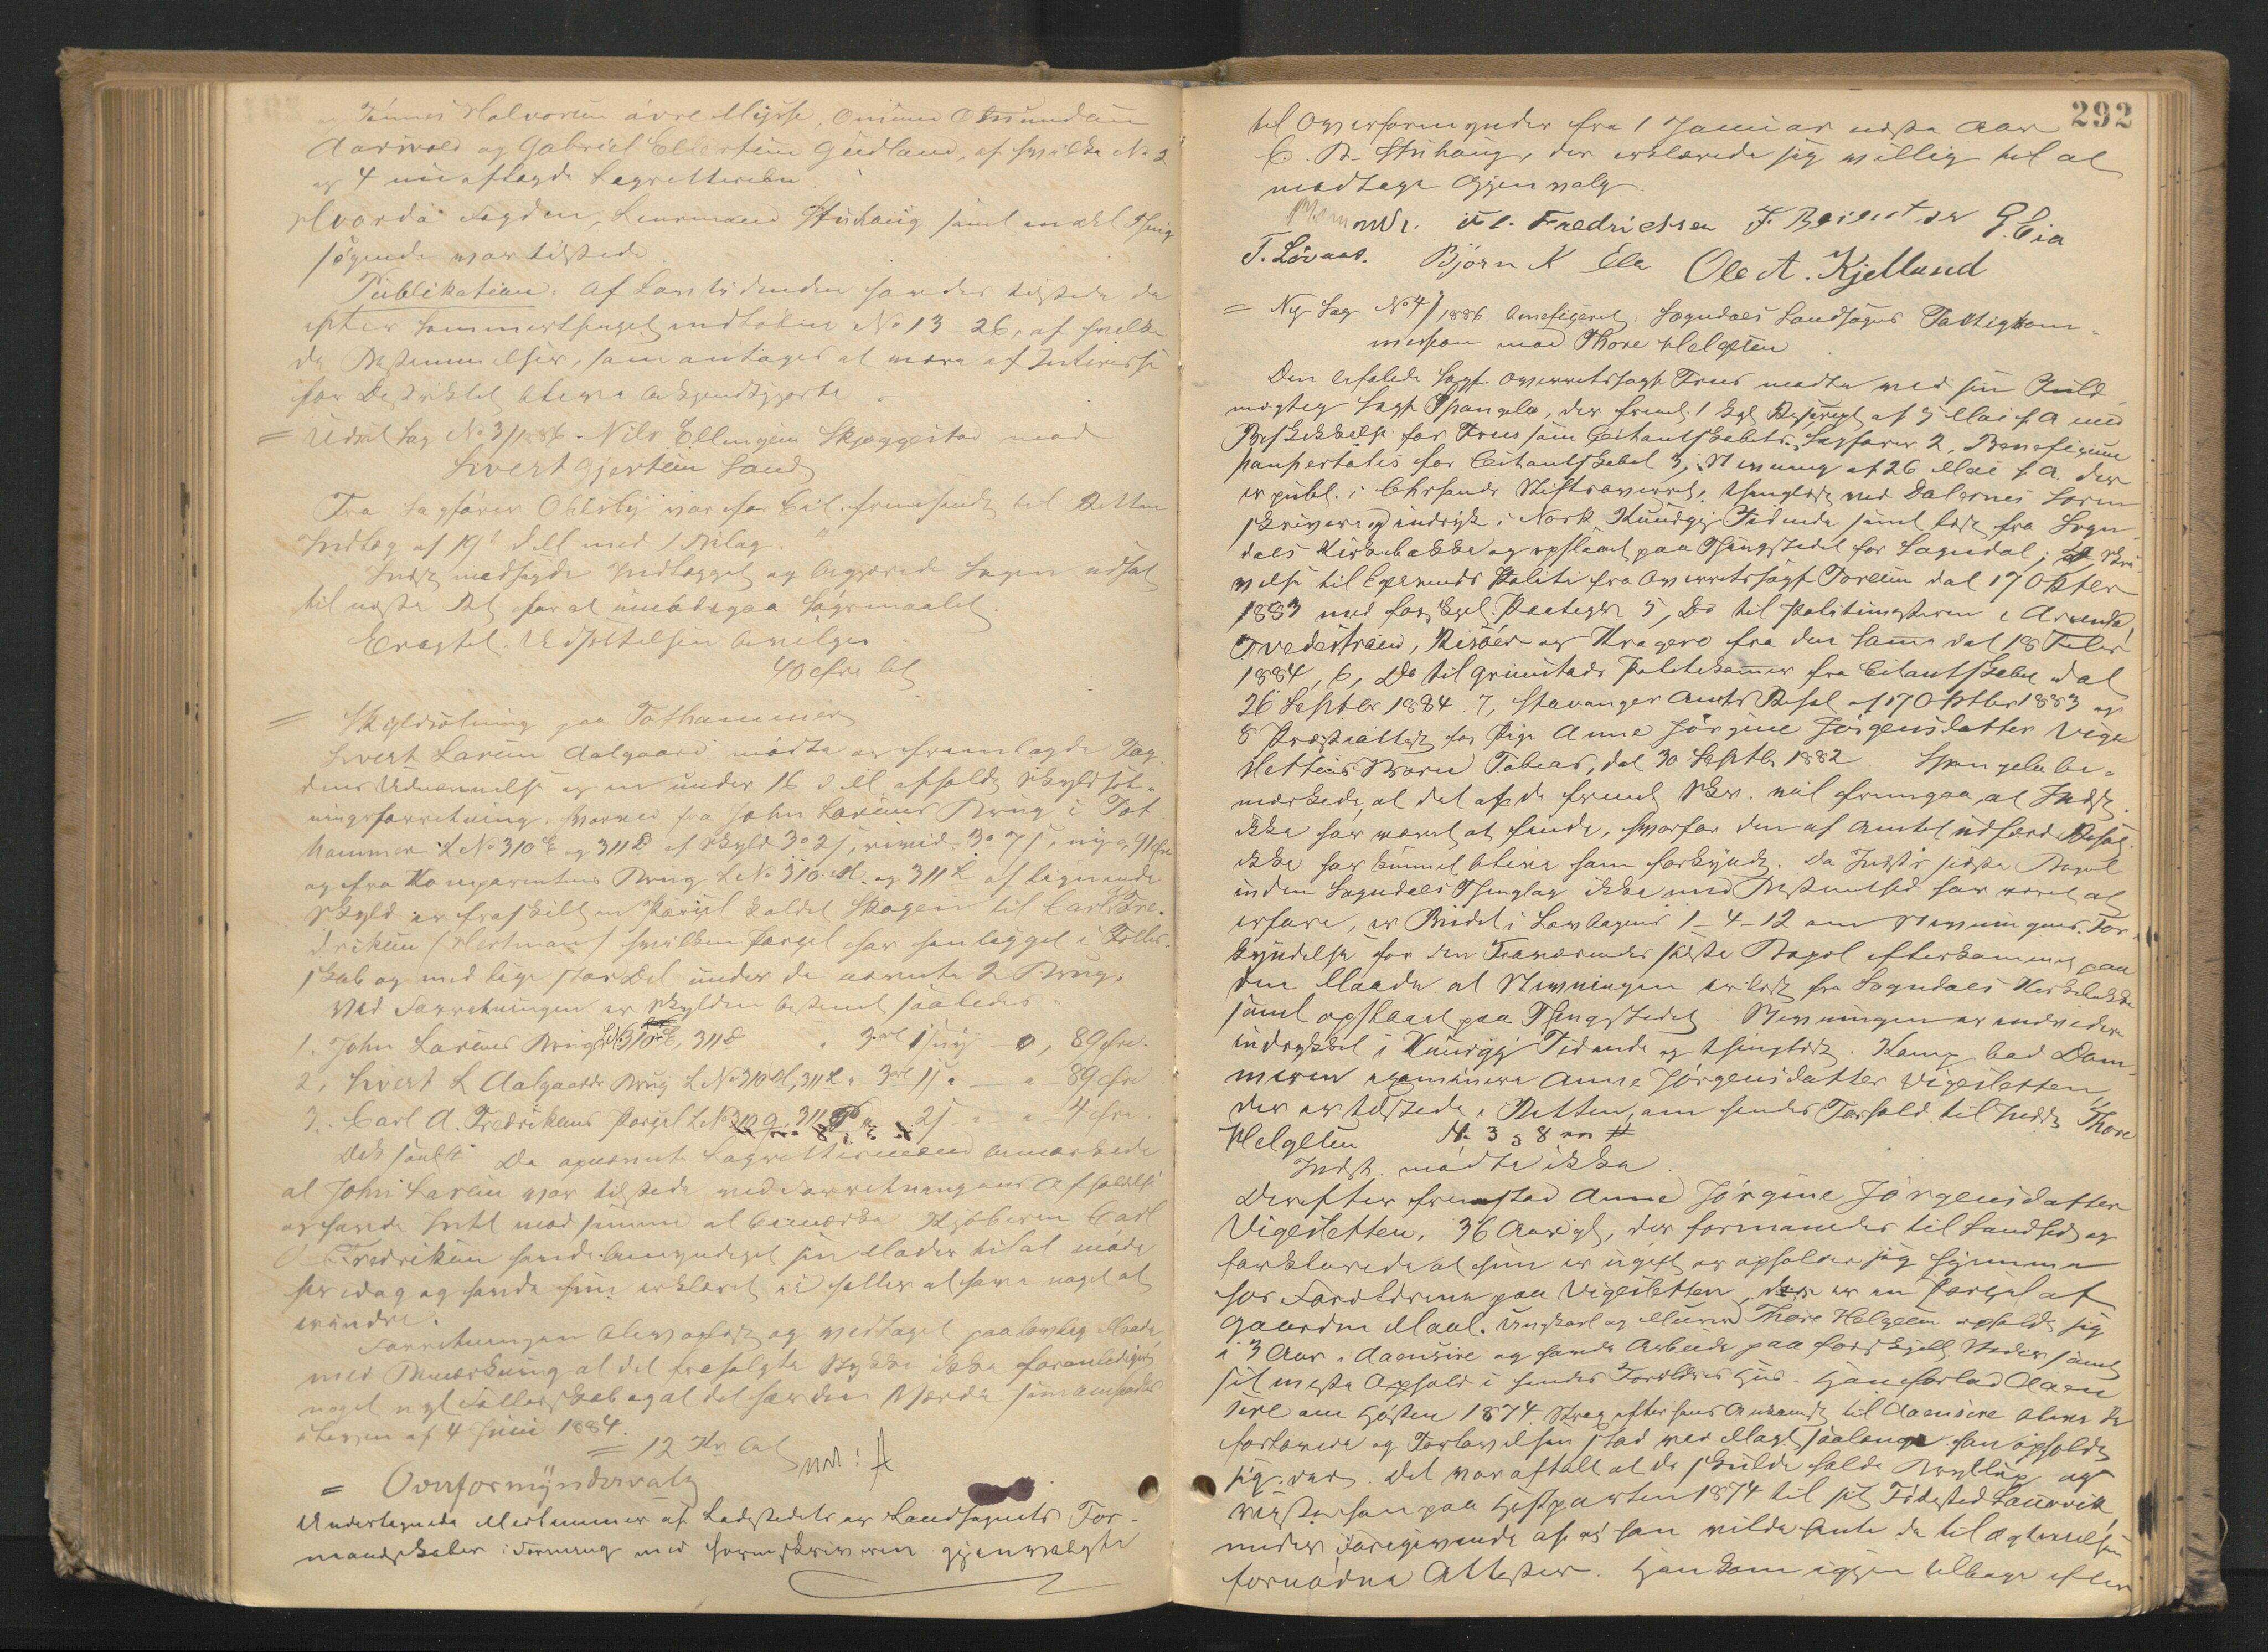 Tønnes Halvorsen øvre Mysse, Omund Omundsen
Aarrvold og Gabriel Ellertsen Gudland, af hvilke No 2
og 4 nu aflagde Lagretteeden.
Hvorda Fogden, Lensmand Stuhaug samt en Del Thing
søgende var tilstede.
Publikation. Af Lovtidenden havdes tilstede de
efter Sommerthinget indkomne No 13-26, af hvilke
de Bestemmelser, som antoges at være af Interesse
for Distriktet bleve bekjendtgjorte.
= Udsat Sag No 3/1886. Nils Ellingsen Skjeggestad mod
Sivert Gjertsen Sand
Fra Sagfører Ohlsby var for Cit. fremsendt til Retten
Indlæg af 19de d.M. med 1 Bilag.
Indst. modsagde Indlægget og begjærede Sagen udsat
til næste Ret for at imødegaa Søgsmaalet.
Eragtet. Udsættelsen bevilges.
40 øre bet
= Skyldsætning paa Tothammer
Sivert Larsen Aalgaard mødte og fremlagde Fog-
dens Udnævnelse og en under 16 d.M. afholdt Skyldsæt-
ningsforretning, hvorved fra John Larsens Brug i Tot-
hammer L No 310 E og 311 D af Skyld
og fra Komparentens Brug L No 310 M og 311 L af lignende
Skyld er fraskilt en Parcel kaldet Skogen til Carl A. Fre-
driksen (Hertman) hvilken Parcel har henligget i Fælles-
skab og med lige stor Del under de nævnte 2 Brug.
Ved Forretningen er Skylden bestemt saaledes:
1. John Larsens Brug L No 310 E, 311 D 3 ort 1 s ny 0, 89 Øre.
2. Sivert L Aalgaards Brug L No 310 M, 311 L 3 ort 1 s 89 Øre
3. Carl A. Fredriksens Parcel L No 310 g, 311 2 s 4 Øre.
De opnævnte Lagrettesmænd bemærkede
at John Larsen var tilstede ved Forretningens Afholdelse
og havde Intet mod samme at bemærke. Kjøberen Carl
A Fredriksen havde bemyndiget sin Moder til at møde
her idag og havde hun erklæret ei heller at have noget at
erindre.
Forretningen blev oplæst og vedtaget paa lovlig Maade
med Bemærkning at det frasolgte Stykke ikke foranlediger
noget nyt Fællesskab og at det har den Værdi som omhandles
i Loven af 4 Juni 1884.
= 12 Kr bet
= Overformyndervalg
Undertegnede Medlemmer af Ladestedets og Landsognets For-
mandskaber i Forening med Sorenskriveren gjenvalgte
292
til Overformynder fra 1 Januar næste Aar
C. B. Stuhaug, der erklærede sig villig til at
modtage Gjenvalg.
Fredrichsen G. Eia
T. Løvaas. Bjørn K Eia Ole A. Kjelland
= Ny Sag No 4/1886 beneficeret: Sogndals Landsogns Fattigkom-
mission mod Thore Helgesen
Den befalede Sagf. Overretssagf. Trus mødte ved sin Fuld-
mægtig Sagf. Spangelo, der freml. 1 Kgl Reskript af 5 Mai f A med
Beskikkelse for Trus som Citantskabets Sagfører 2, Beneficium
paupertatis for Citantskabet 3, Stevning af 26 Mai f A. der
er publ. i Chrsands Stiftsoverret, thinglæst ved Dalernes Soren-
skriveri og indrykt i Norsk Kundgj Tidende samt læst fra Sogn-
dals Kirkebakke og opslaaet paa Thingstedet for Sogndal; 4, Skri-
velse til Egersunds Politi fra Overretssagf Torsen dat 17 Oktber
1883 med forskjel. Paategn 5, Do til Politimesteren i Arendal,
Tvedestrand, Risøer og Kragerø fra den samme dat 18 Feber
1884, 6, Do til Grimstads Politikammer fra Citantskabet dat
26 Septber 1884. 7, Stavanger Amts Resol. af 17 Oktber 1883 og
8 Præsteattest for Pige Anne Jørgine Jørgensdatter Vige-
slettens Barn Tobias, dat 30 Septb. 1882. Spangelo be-
mærkede, at det af de freml Skr. vil fremgaa, at Indst.
ikke har været at finde, hvorfor den af Amtet udfærd. Resol.
ikke har kunnet blive ham forkyndt. Da Indst's sidste Bopæl
inden Sogndals Thinglag ikke med Bestemthed har været at
erfare, er Budet i Lovbogens 1-4-12 om Stevningens For-
kyndelse for den Fraværendes sidste Bopæl efterkommet paa
den Maade at Stevningen er læst fra Sogndals Kirkebakke
samt opslaaet paa Thingstedet. Stevningen er endvidere
indrykket i Kundgj Tidende og thinglæst. Komp. bad Dom-
meren examinere Anne Jørgensdatter Vigesletten,
der er tilstede i Retten, om hendes Forhold til Indst. Thore
Helgesen
Indst. mødte ikke.
Derefter fremstod Anne Jørgine Jørgensdatter
Vigesletten, 36 Aar gl, der formanedes til Sandhed og
forklarede at hun er ugift og opholder sig hjemme
hos Forældrene paa Vigesletten, der er en Parcel af
Gaarden Maal. Ungkarl og Murer Thore Helgesen opholdt sig
i 3 Aar i Aaensire og havde Arbeide paa forskjell. Steder samt
sit meste Ophold i hendes Forældres Hus. Han forlod Aaen-
sire om Høsten 1874. Strax efter hans Ankomst til Aaensire bleve de
forlovede og Forlovelsen stod ved Magt saalænge han opholdt
sig der. Det var aftalt at de skulde holde Bryllup og
reiste han paa Høstparten 1874 til sit Fødested Laurvik
under Foregivende af at han vilde hente de til Ægtevielsen
fornødne Attester. Han kom igjen tilbage efter